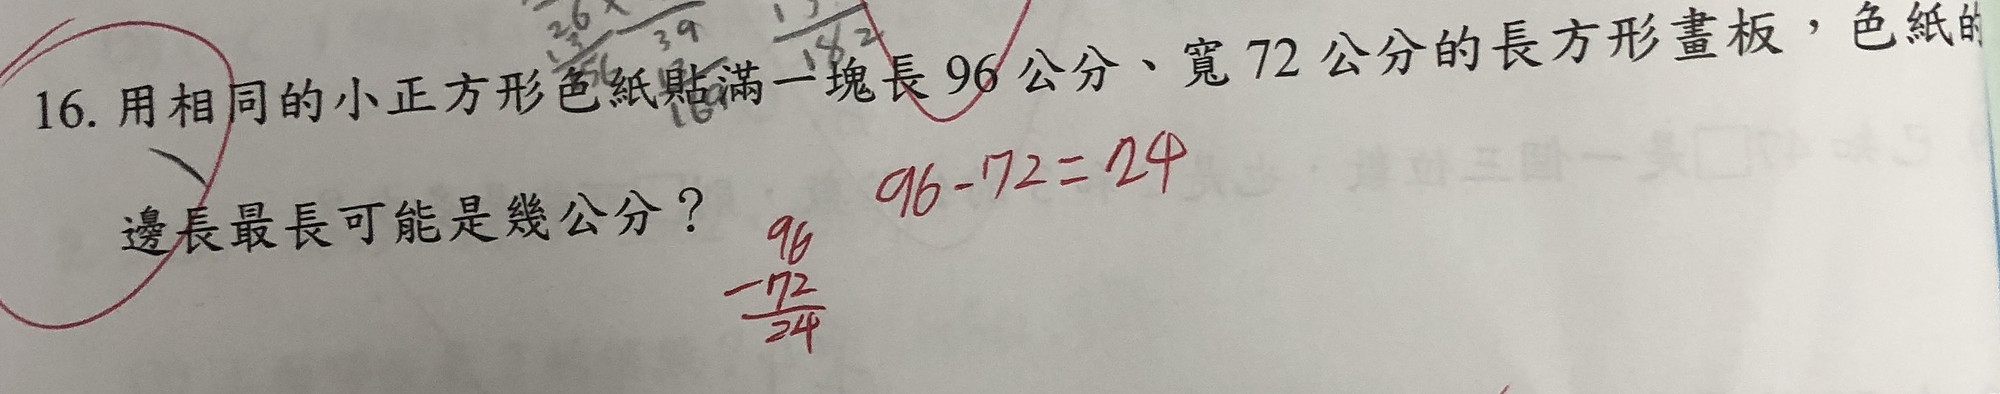 26×
39
182
16. 用相同的小正方形色紙貼滿一塊長 96 公分、寬 72 公分的長方形畫板，色紙的
邊長最長可能是幾公分？
96-72=24
96
-72
24